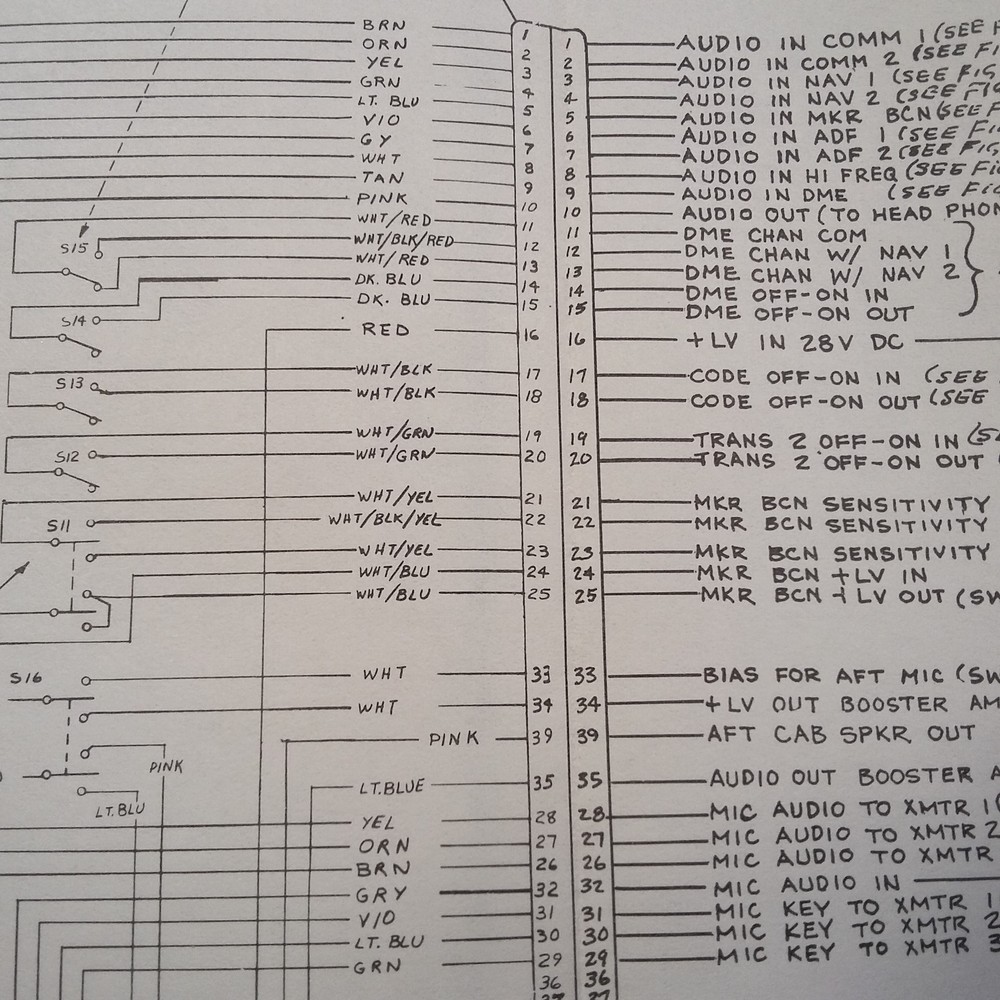 BRN 1 1 AUDIO IN COMM 1 (SEE
ORN 2 2 AUDIO IN COMM 2 (SEE FI
YEL 3 3 AUDIO IN NAV 1 (SEE FIG
GRN 4 4 AUDIO IN NAV 2 (SEE FIG
LT. BLU 5 5 AUDIO IN MKR BCN (SEE F
VIO 6 6 AUDIO IN ADF 1 (SEE FI
GY 7 7 AUDIO IN ADF 2 (SEE FIG
WHT 8 8 AUDIO IN HI FREQ (SEE FI
TAN 9 9 AUDIO IN DME (SEE FI
PINK 10 10 AUDIO OUT (TO HEAD PHON
WHT/RED 11 11 DME CHAN COM
S15 WHT/BLK/RED 12 12 DME CHAN W/ NAV 1
WHT/RED 13 13 DME CHAN W/ NAV 2
DK. BLU 14 14 DME OFF-ON IN
DK. BLU 15 15 DME OFF-ON OUT
S14
RED 16 16 +LV IN 28V DC
WHT/BLK 17 17 CODE OFF-ON IN (SEE
S13 WHT/BLK 18 18 CODE OFF-ON OUT (SEE
WHT/GRN 19 19 TRANS 2 OFF-ON IN (S
S12 WHT/GRN 20 20 TRANS 2 OFF-ON OUT
WHT/YEL 21 21 MKR BCN SENSITIVITY
S11 WHT/BLK/YEL 22 22 MKR BCN SENSITIVITY
WHT/YEL 23 23 MKR BCN SENSITIVITY
WHT/BLU 24 24 MKR BCN +LV IN
WHT/BLU 25 25 MKR BCN +LV OUT (SW
S16 WHT 33 33 BIAS FOR AFT MIC (SW
WHT 34 34 +LV OUT BOOSTER AM
PINK 39 39 AFT CAB SPKR OUT
PINK
LT.BLUE 35 35 AUDIO OUT BOOSTER A
LT. BLU
YEL 28 28 MIC AUDIO TO XMTR 1 (
ORN 27 27 MIC AUDIO TO XMTR 2
BRN 26 26 MIC AUDIO TO XMTR
GRY 32 32 MIC AUDIO IN
VIO 31 31 MIC KEY TO XMTR 1
LT. BLU 30 30 MIC KEY TO XMTR 2
GRN 29 29 MIC KEY TO XMTR 3
36 36